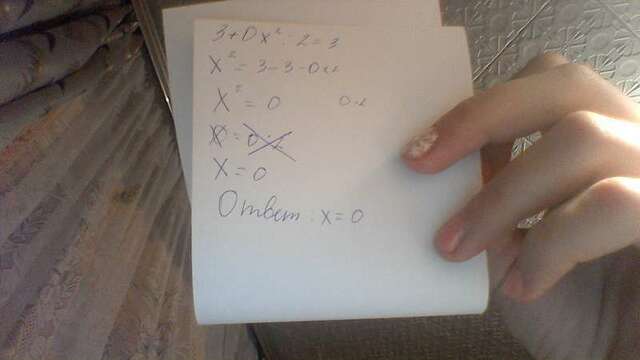 3+0x²:2=3
x²=3-3-0·2
x²=0 0·2
x=0·2
x=0
Ответ: x=0